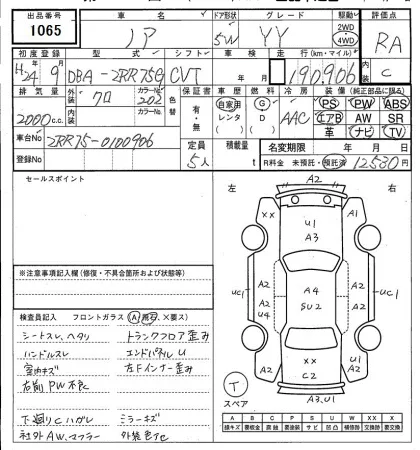 出品番号 車名 ドア形状 グレード 駆動 評価点
1065 ノア 5W YY 2WD 4WD RA
初度登録 型式 シフト 車検 走行(km・マイル) 内装
H24 9 DBA-ZRR75G CVT 年 月 190,906 C
排気量 外装 色 カラーNo. 色替 保証書 車歴 燃料 冷房 装備(純正部品に限る)
2000c.c. クロ 202 有・無 自家用 レンタ G D AAC PS PW ABS
内装 カラーNo. エアB AW SR
革 ナビ TV
車台No. ZRR75-0100906 定員 積載量 名変期限 年 月 日
登録No. 5人 t R料金 未預託・預託済 12530円
セールスポイント
左 右
A2
XX U1 A1
A3
A2 A4 A2
UC1 A2 UC1
U4 SU2 A2
A2 XX U1
C2 A2
A3.U1
T
スペア
※注意事項記入欄(修復・不具合箇所および状態等)
検査員記入 フロントガラス(A 飛石 ×要ス)
シートスレ、ヘタリ トランクフロア歪み
ハンドルスレ エンドパネルU
室内キズ 左Fインナー歪み
右前PW不良
下廻りCハガレ ミラーキズ
社外AW、マフラー 外装色アセ
A B C P S U W X XX
線キズ 要板金 腐蝕 要塗装 サビ 凹凸 補修跡 交換跡 要交換